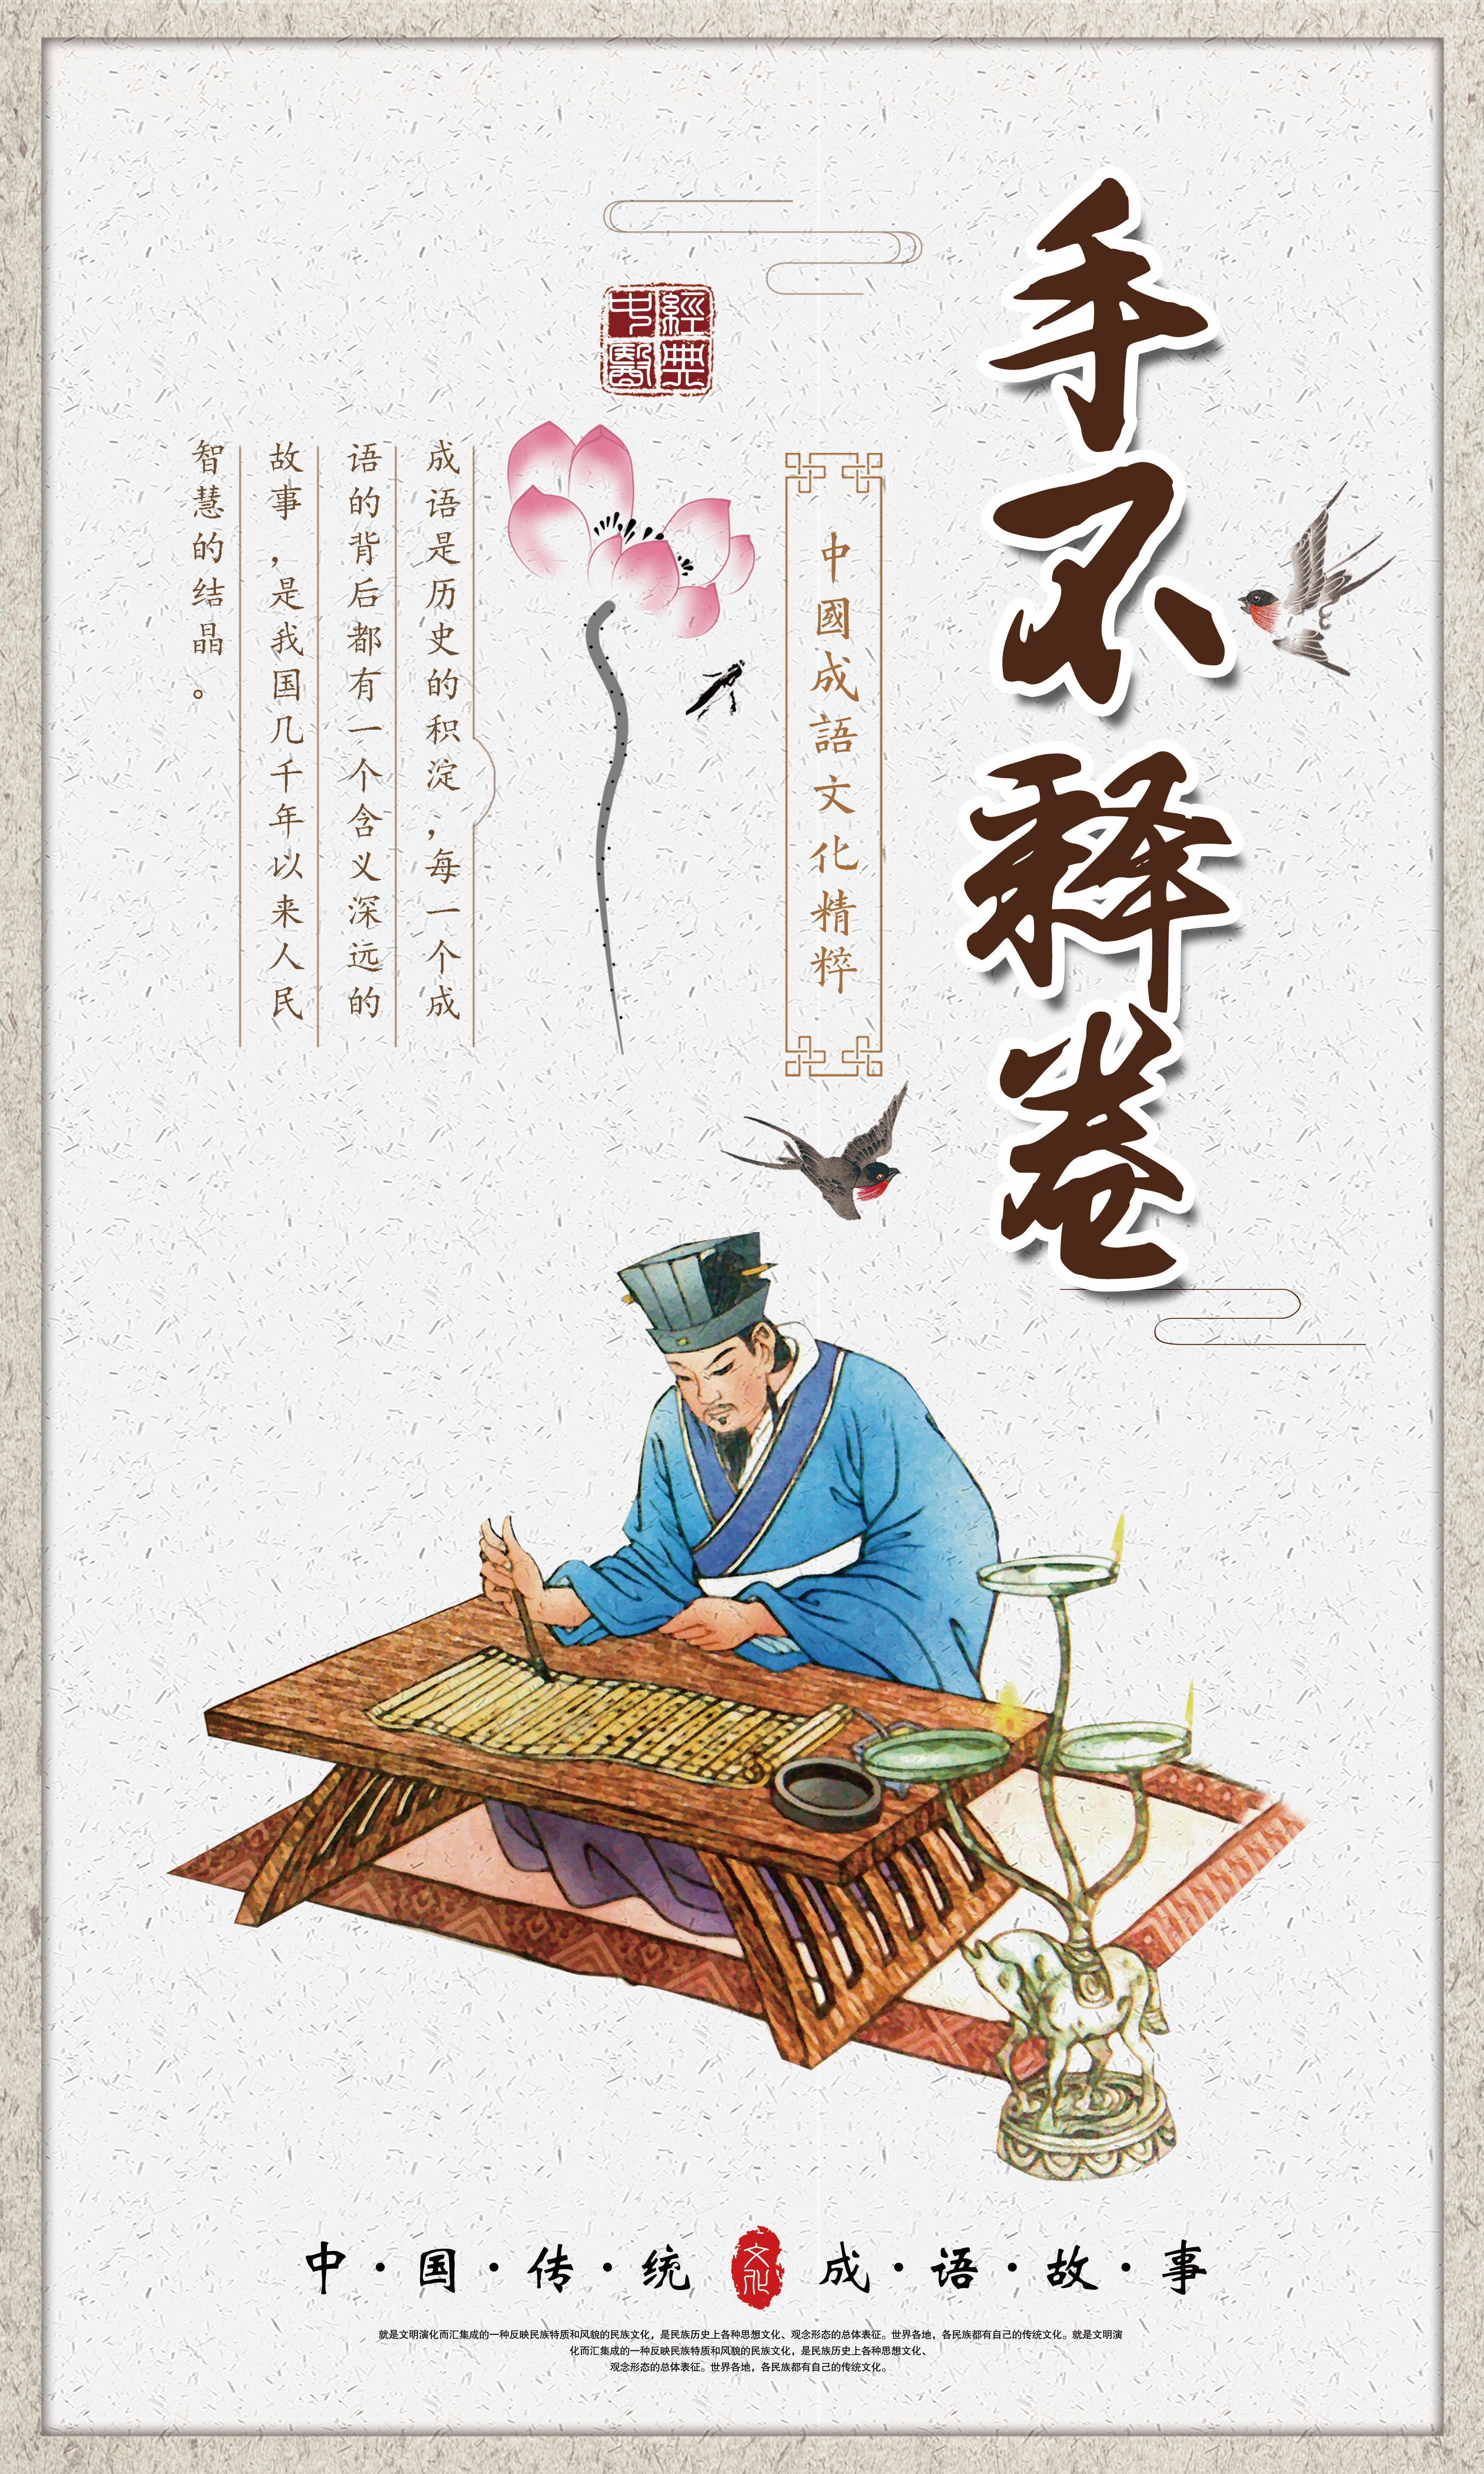 手不释卷
中國成語文化精粹
經典
中醫
成语是历史的积淀，每一个成
语的背后都有一个含义深远的
故事，是我国几千年以来人民
智慧的结晶。
中·国·传·统 文化 成·语·故·事
就是文明演化而汇集成的一种反映民族特质和风貌的民族文化，是民族历史上各种思想文化、观念形态的总体表征。世界各地，各民族都有自己的传统文化。就是文明演
化而汇集成的一种反映民族特质和风貌的民族文化，是民族历史上各种思想文化、
观念形态的总体表征。世界各地，各民族都有自己的传统文化。